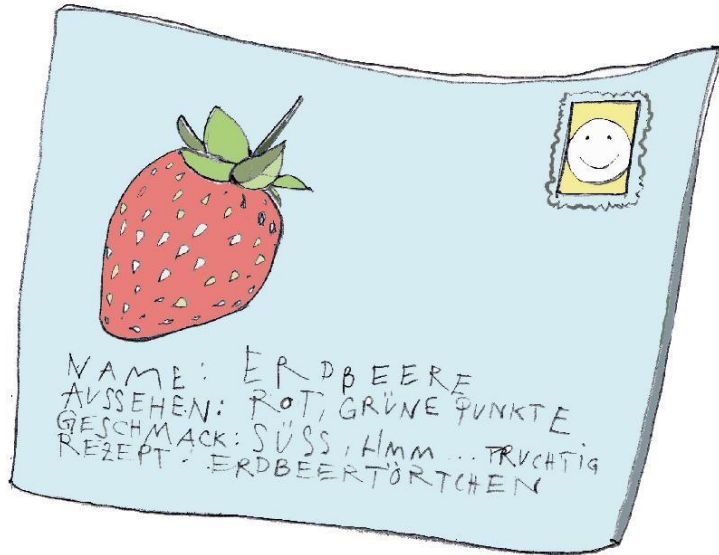 NAME: ERDBEERE
AUSSEHEN: ROT, GRÜNE PUNKTE
GESCHMACK: SÜSS, HMM... FRUCHTIG
REZEPT: ERDBEERTÖRTCHEN